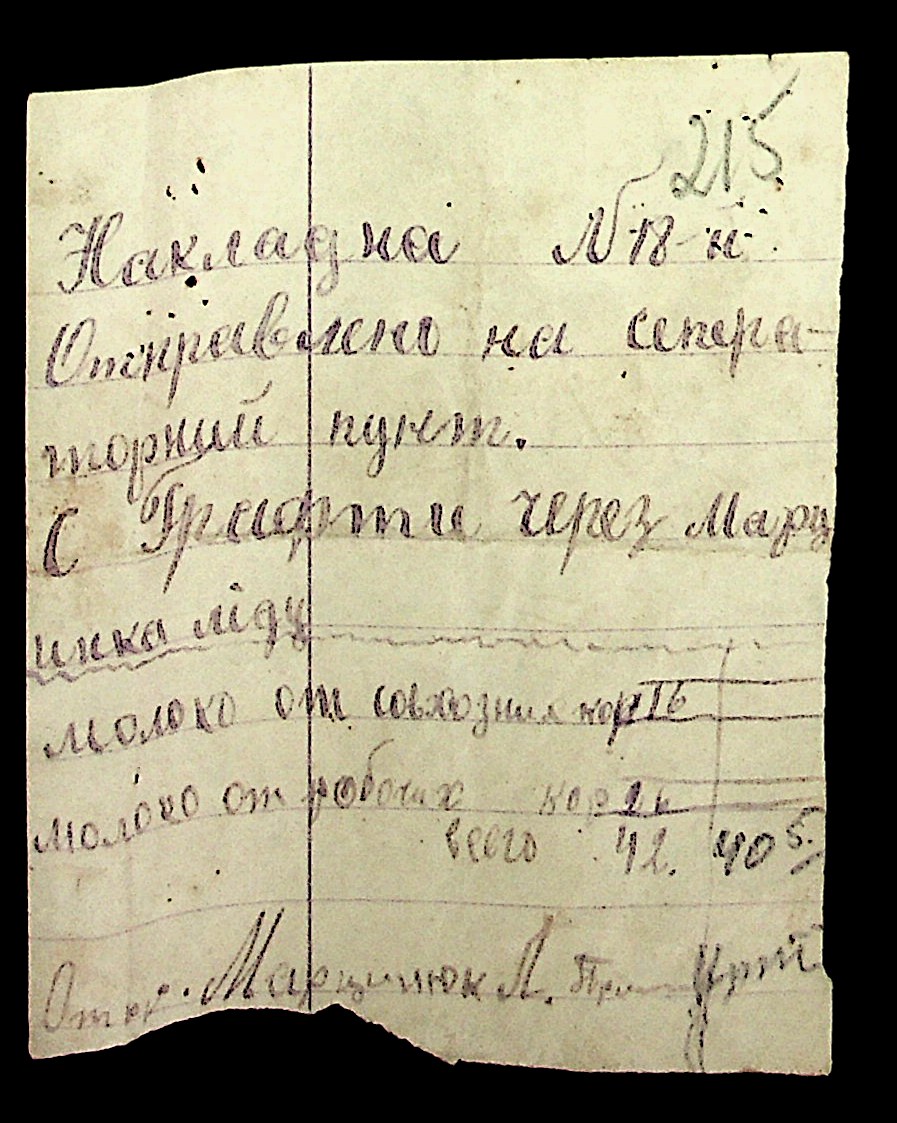 215
Накладна № 18-н.
Отправлено на сепера-
торний пункт.
С Графти через Марц
инка ліду
молоко от совхозних кор 16
молоко от робочих кор 26
всего 42. 40 5.
Марцинюк Л.